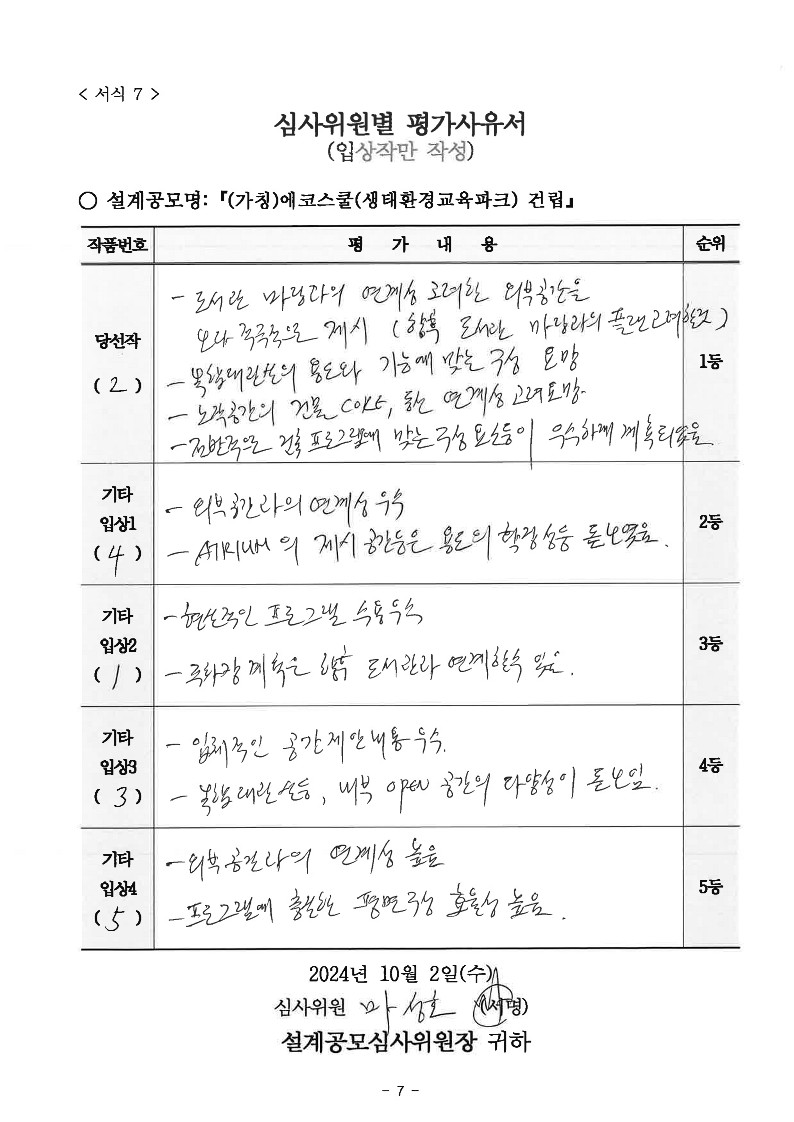 < 서식 7 >
심사위원별 평가사유서
(입상작만 작성)
○ 설계공모명: 『(가칭)에코스쿨(생태환경교육파크) 건립』
작품번호 평 가 내 용 순위
당선작
( 2 )
- 도서관 마당과의 연계성 고려한 외부공간을
보다 적극적으로 제시 (향후 도서관 마당과의 플랜고려할것)
- 복합대관실의 용도와 기능에 맞는 구성 요망
- 노작공간의 건물 CORE, 동선 연계성 고려요망.
- 전반적으로 건축프로그램에 맞는 구성요소등이 우수하게 계획되었음
1등
기타
입상1
( 4 )
- 외부공간과의 연계성 우수
- ATRIUM 의 제시 공간등은 용도의 확장성등 돋보였음.
2등
기타
입상2
( 1 )
- 현실적인 프로그램 수용우수
- 계획은 향후 도서관과 연계할수 있음.
3등
기타
입상3
( 3 )
- 입체적인 공간제안내용우수.
- 복합대관실등, 내부 OPEN 공간의 다양성이 돋보임.
4등
기타
입상4
( 5 )
- 외부공간과의 연계성 높음
- 프로그램에 충실한 평면구성 효율성 높음.
5등
2024년 10월 2일(수)
심사위원 마성호 (서명)
설계공모심사위원장 귀하
- 7 -